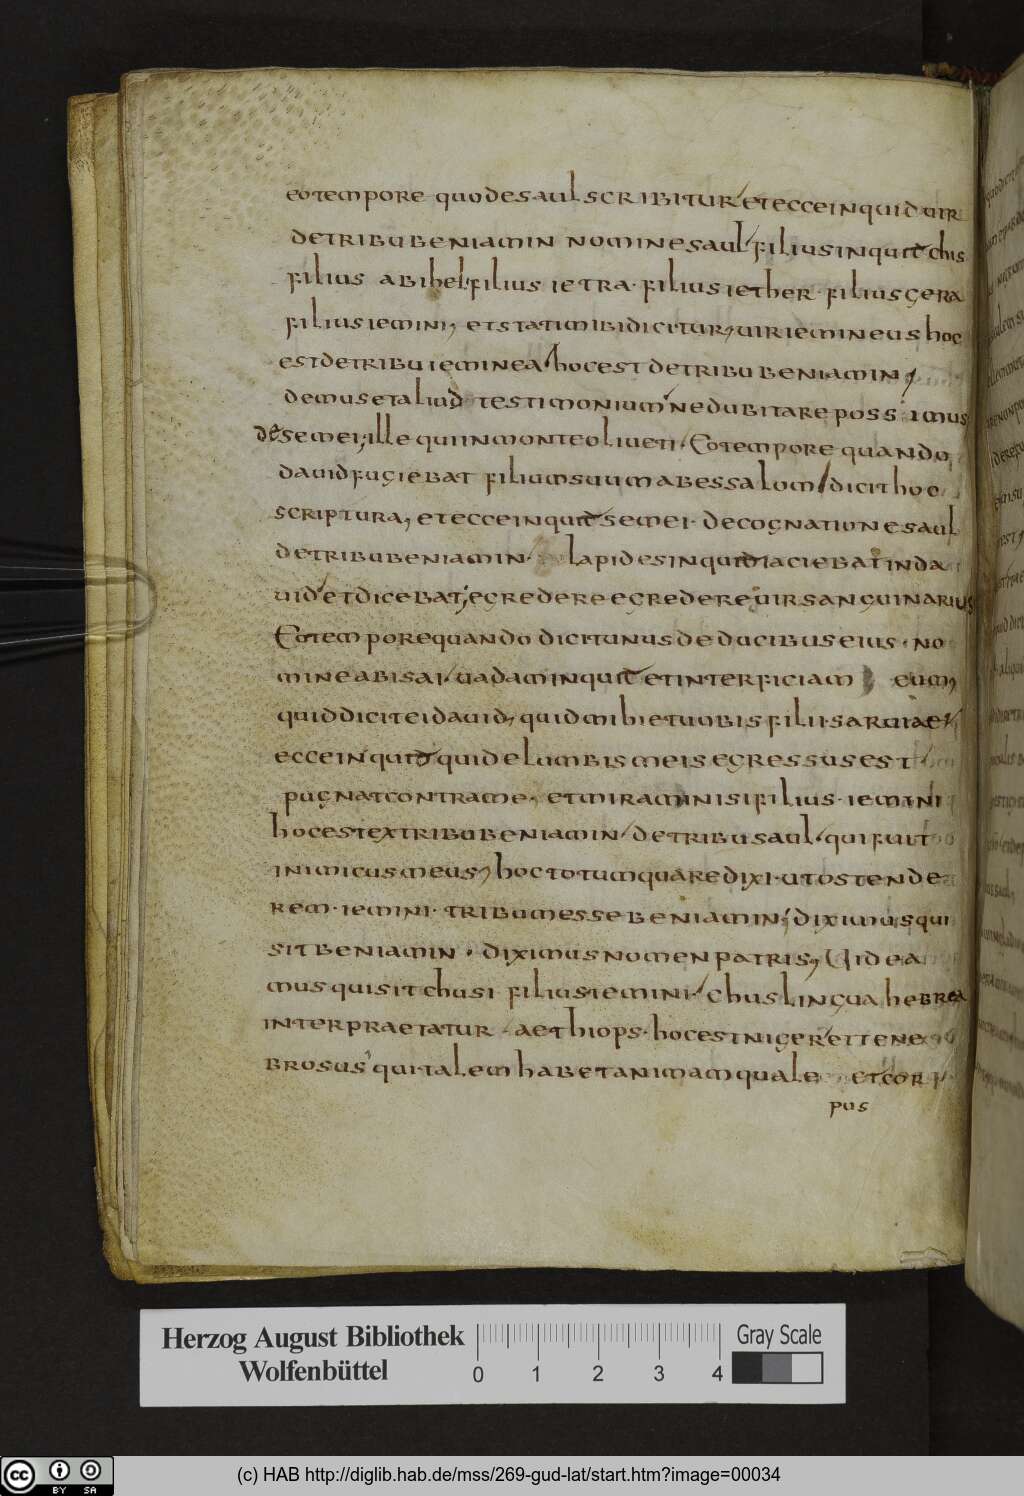 eo tempore quo de saul scribitur et ecce inquid uir
de tribu beniamin nomine saul filius inquit chis
filius abihel filius ietra · filius iether · filius gera
filius iemini, et statim ibi dicitur, uir iemineus hoc
est de tribu ieminea hoc est de tribu beniamin,
demus et aliud testimonium ne dubitare possimus
de semei, ille qui in monte oliueti · Eo tempore quando
dauid fugiebat filium suum abessalom dicit hoc
scriptura, et ecce inquit semei · de cognatione saul
de tribu beniamin · lapides inquid iaciebat in da
uid et dicebat; egredere egredere uir sanguinarius
Eo tempore quando dicit unus de ducibus eius · no
mine abisai uadam inquit et interficiam eum,
quid dicit ei dauid, quid mihi et uobis filii saruiae
ecce inquid quid e lumbis meis egressus est
pugnat contra me, et miramini si filius · iemini
hoc est ex tribu beniamin de tribu saul qui fuit
inimicus meus, hoc totum quare dixi · ut ostende
rem · iemini · tribum esse beniamin; diximus qui
sit beniamin · diximus nomen patris, Uidea
mus qui sit chusi filius iemini · chus lingua hebrea
interpraetatur · aethiops · hoc est niger et tene
brosus qui talem habet animam quale et cor
pus
Herzog August Bibliothek
Wolfenbüttel
0 1 2 3 4
Gray Scale
cc BY SA
(c) HAB http://diglib.hab.de/mss/269-gud-lat/start.htm?image=00034